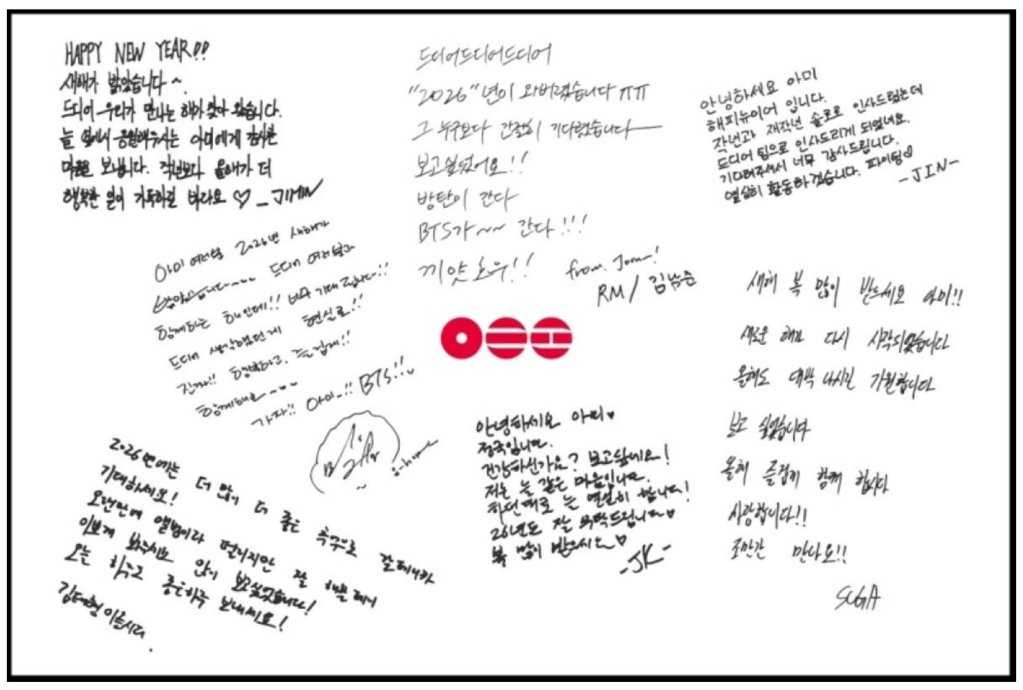 HAPPY NEW YEAR!!
새해가 밝았습니다~.
드디어 우리가 만나는 해가 찾아 왔습니다.
늘 옆에서 응원해주시는 아미에게 감사한
마음을 보냅니다. 작년보다 올해가 더
행복한 일이 가득하길 바라요 ♡ _JIMIN
드디어드디어드디어
"2026"년이 와버렸습니다 ㅠㅠ
그 누구보다 간절히 기다렸습니다
보고싶었어요!!
방탄이 간다
BTS가~~ 간다!!!
끼얏호우!!
from. Joon!
RM / 김남준
안녕하세요 아미
해피뉴이어 입니다.
작년과 재작년 솔로로 인사드렸는데
드디어 팀으로 인사드리게 되었네요.
기다려주셔서 너무 감사드립니다.
열심히 활동하겠습니다. 파이팅♡
-JIN-
아미 여러분 2026년 새해가
밝았습니다~~~ 드디어 여러분과
함께하는 해인데!! 너무 기대됩니다!!
드디어 생각했던게 현실로!!
진짜!! 행복하고, 즐겁게!!
함께해요~
가자!! 아미..!! BTS!!
j-hope
새해 복 많이 받으세요 아미!!
새로운 해가 다시 시작되었습니다
올해도 대박 나시길 기원합니다
보고 싶었습니다
올해 즐겁게 함께 합시다
사랑합니다!!
조만간 만나요!!
SUGA
안녕하세요 아미♥
정국입니다.
건강하신가요? 보고싶네요!
저는 늘 같은 마음입니다.
하던대로 늘 열심히 합니다!
26년도 잘 부탁드립니다♥
복 많이 받으시오♡
-JK-
2026년에는 더 많이 더 좋은 추억으로
기대하세요!
오랜만에 앨범이라 떨리지만 잘 해볼테니
이쁘게 봐주시요 많이 보고싶었습니다!
오늘 하루도 좋은하루 보내세요!
김태형 이올시다.